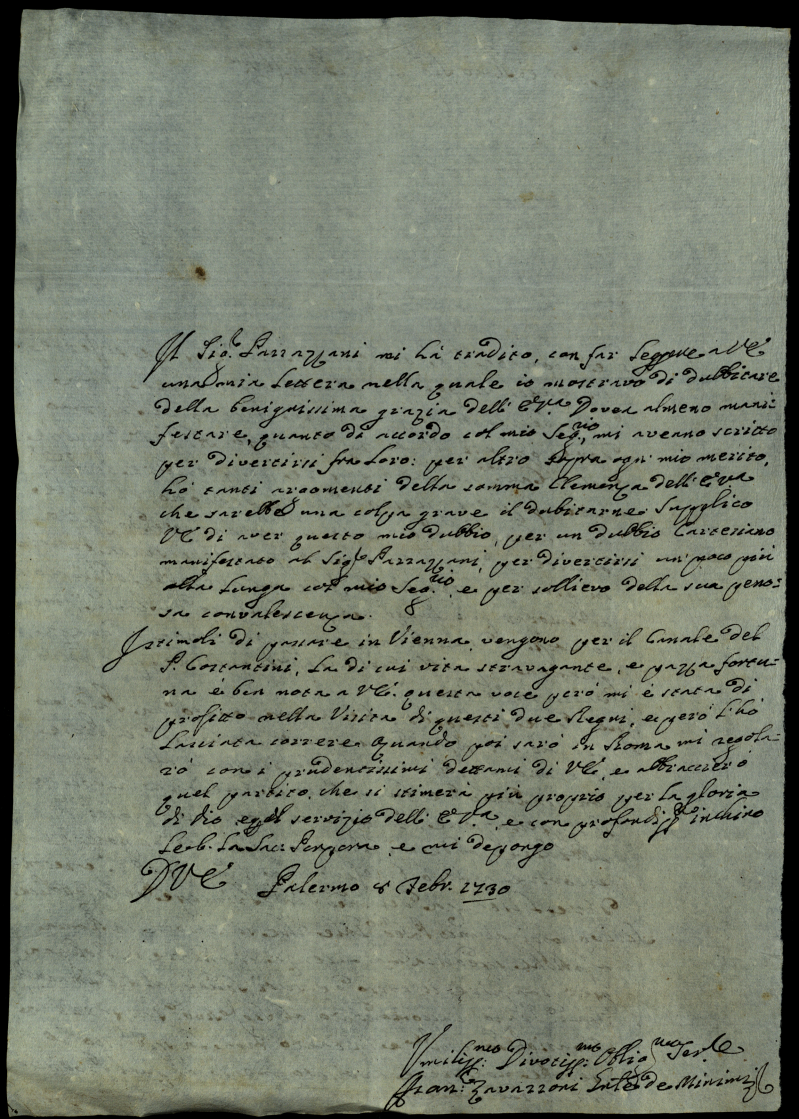 Il Sig.r Parrazzani mi hà tradito, con far leggere a VE
una mia Lettera nella quale io mostravo di dubbitare
della benignissima grazia dell' E.va. Dovea almeno mani-
festare, quanto di accordo col mio Seg.rio, mi aveano scritto
per divertirsi fra Loro: per altro sopra ogni mio merito,
hò tanti argomenti della somma Clemenza dell' E.va
che sarebbe una colpa grave il dubitarne. Supplico
VE di aver questo mio dubbio, per un dubbio Cartesiano
manifestato al Sig.r Parrazzani, per divertirsi un poco più
alla lunga col mio Seg.rio, e per sollievo della sua peno-
sa convalescenza.
I stimoli di passare in Vienna, vengono per il Canale del
P. Costantini, la di cui vita stravagante, e pazza fortu-
na è ben nota a VE. questa voce però mi è stata di
profitto nella Visita di questi due Regni, e però l'hò
lasciata correre. Quando poi sarò in Roma mi regola-
rò con i prudentissimi dettami di VE, e abbraccierò
quel partito, che si stimerà più proprio per la gloria
di Dio e pel servizio dell' E.va, e con profondiss.o inchino
le b. la Sac: Porpora, e mi depongo
DVE Palermo 8 Febr. 1730
Umiliss:mo Divotiss:mo Oblig.mo Ser.e
Fran: Zavarroni Gnle de Minimi